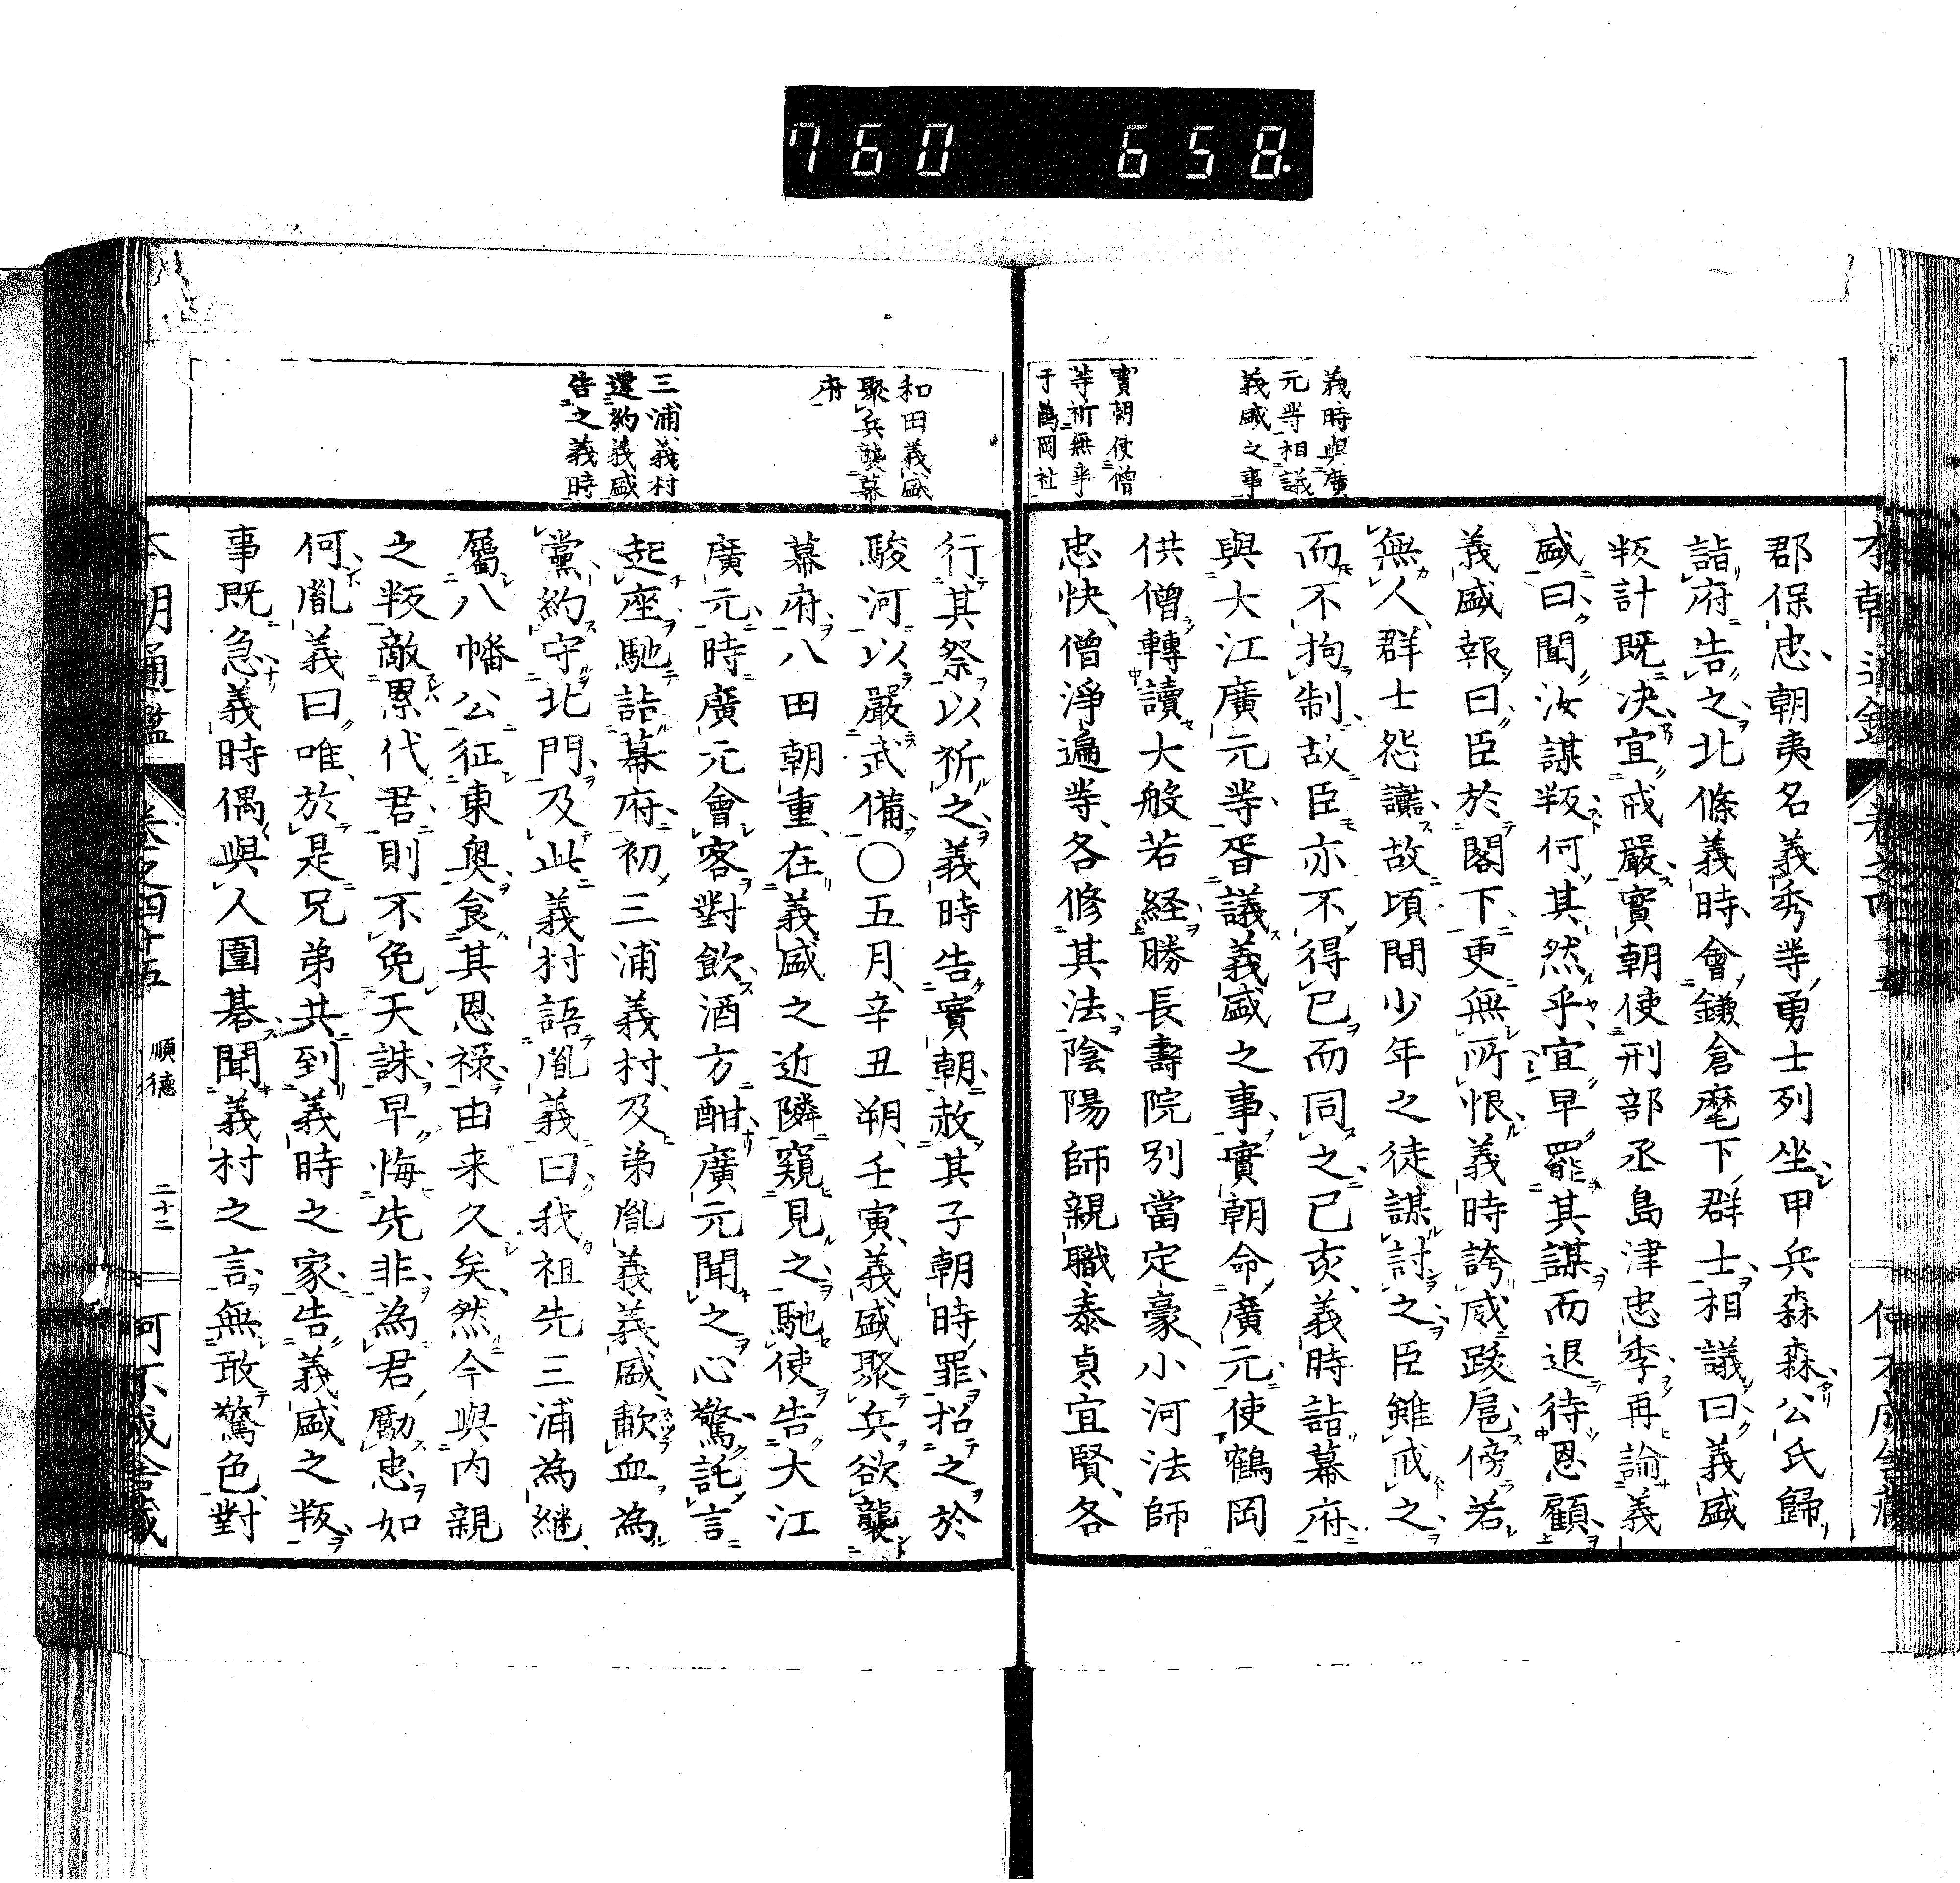 760 658.
義時與廣
元等相議
義盛之事
實朝使僧
等祈無事
于鶴岡社
郡保忠朝夷名義秀等勇士列坐甲兵森森公氏歸
詣府告之北條義時會鎌倉麾下群士相議曰義盛
叛計既决宜戒嚴實朝使刑部丞島津忠季再諭義
盛曰聞汝謀叛何其然乎宜早罷其謀而退待恩顧
義盛報曰臣於閣下更無所恨義時誇威跋扈傍若
無人群士怨讟故頃間少年之徒謀討之臣雖戒之
而不拘制故臣亦不得已而同之已亥義時詣幕府
與大江廣元等胥議義盛之事實朝命廣元使鶴岡
供僧轉讀大般若経勝長壽院別當定豪小河法師
忠快僧淨遍等各修其法陰陽師親職泰貞宜賢各
和田義盛
聚兵襲幕
府
三浦義村
還約義盛
告之義時
行其祭以祈之義時告實朝赦其子朝時罪招之於
駿河以嚴武備〇五月辛丑朔壬寅義盛聚兵欲襲
幕府八田朝重在義盛之近隣窺見之馳使告大江
廣元時廣元會客對飲酒方酣廣元聞之心驚託言
起座馳詣幕府初三浦義村及弟胤義義盛歃血為
黨約守北門及此義村語胤義曰我祖先三浦為継
屬八幡公征東奥食其恩祿由来久矣然今與内親
之叛敵累代君則不免天誅早悔先非為君勵忠如
何胤義曰唯於是兄弟共到義時之家告義盛之叛
事既急義時偶與人圍棊聞義村之言無敢驚色對
本朝通鑑 卷之四十五 順德 二十二